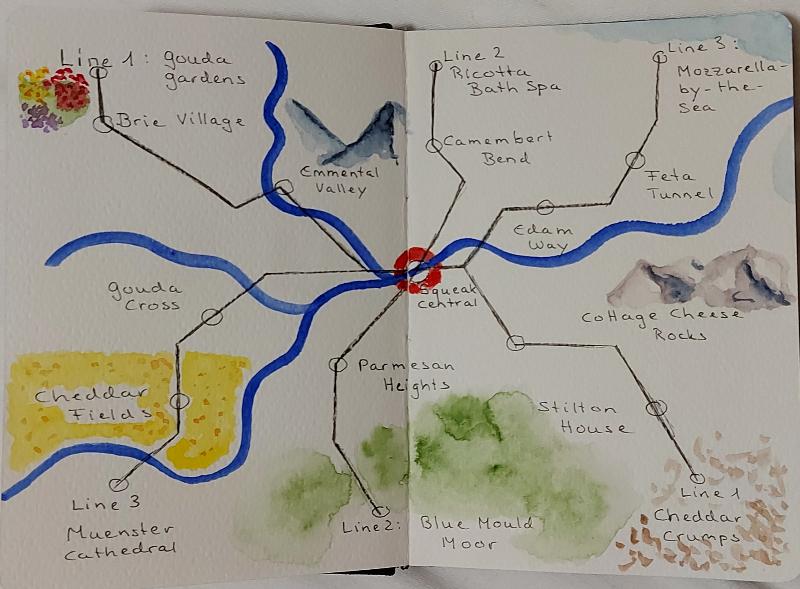 Line 1: Gouda
gardens
Brie Village
Emmental
Valley
Line 2
Ricotta
Bath Spa
Camembert
Bend
Line 3:
Mozzarella-
by-the-
Sea
Feta
Tunnel
Edam
Way
Squeak
Central
Gouda
Cross
Cottage Cheese
Rocks
Parmesan
Heights
Cheddar
Fields
Stilton
House
Line 3
Muenster
Cathedral
Line 2:
Blue Mould
Moor
Line 1
Cheddar
Crumps